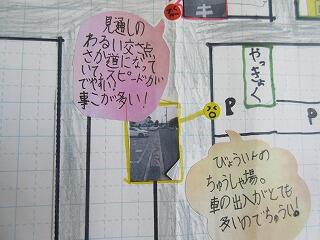 見通しの
わるい交さ点
さか道になって
いて、スピードが
でやすい!
事こが多い!
キ
やっきょく
P
P
びょういんの
ちゅうしゃ場。
車の出入がとても
多いのでちゅうい!